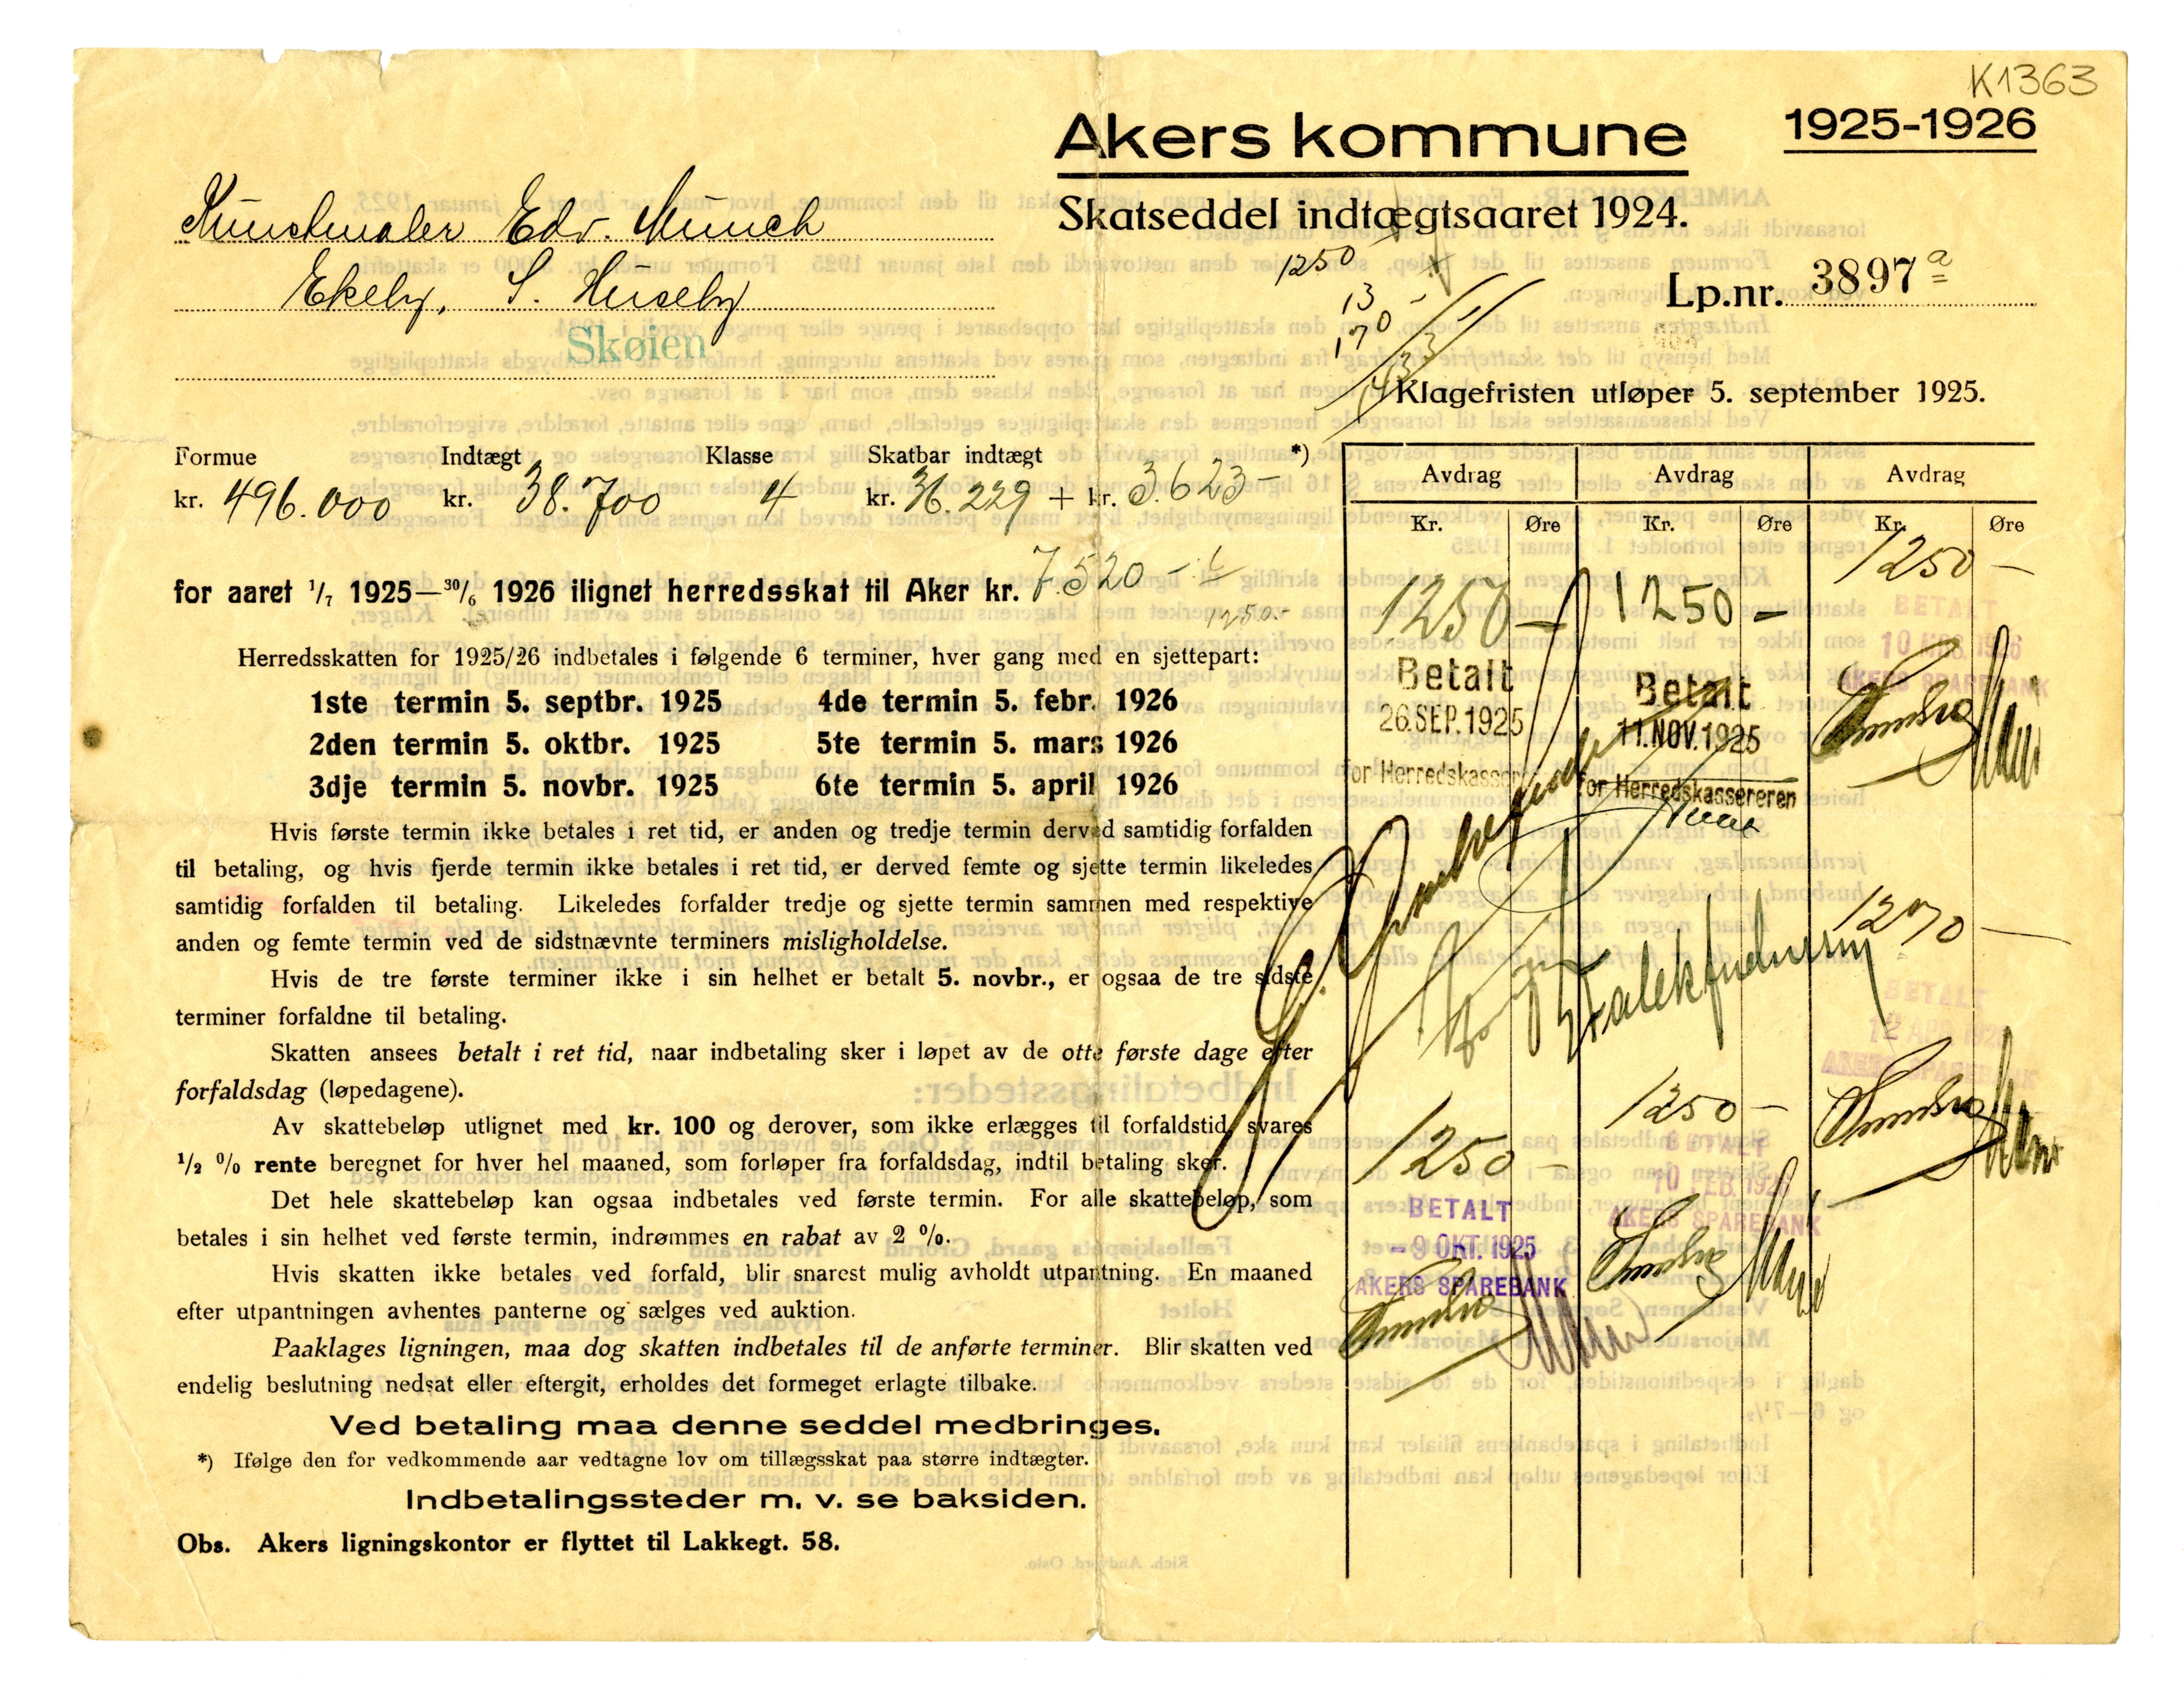 K1363
Akers kommune
1925-1926
Skatseddel indtægtsaaret 1924.
Kunstmaler Edv. Munch
Ekely, S. Huseby
Skøien
1250
13
170
1433
Lp.nr. 3897 a
Klagefristen utløper 5. september 1925.
Formue Indtægt Klasse Skatbar indtægt *)
kr. 496.000 kr. 38.700 4 kr. 36.229 + kr. 3.623 –
for aaret 1/7 1925—30/6 1926 ilignet herredsskat til Aker kr. 7.520 –
1250.-
Herredsskatten for 1925/26 indbetales i følgende 6 terminer, hver gang med en sjettepart:
1ste termin 5. septbr. 1925 4de termin 5. febr. 1926
2den termin 5. oktbr. 1925 5te termin 5. mars 1926
3dje termin 5. novbr. 1925 6te termin 5. april 1926
Hvis første termin ikke betales i ret tid, er anden og tredje termin derved samtidig forfalden
til betaling, og hvis fjerde termin ikke betales i ret tid, er derved femte og sjette termin likeledes
samtidig forfalden til betaling. Likeledes forfalder tredje og sjette termin sammen med respektive
anden og femte termin ved de sidstnævnte terminers misligholdelse.
Hvis de tre første terminer ikke i sin helhet er betalt 5. novbr., er ogsaa de tre sidste
terminer forfaldne til betaling.
Skatten ansees betalt i ret tid, naar indbetaling sker i løpet av de otte første dage efter
forfaldsdag (løpedagene).
Av skattebeløp utlignet med kr. 100 og derover, som ikke erlægges til forfaldstid, svares
1/2 % rente beregnet for hver hel maaned, som forløper fra forfaldsdag, indtil betaling sker.
Det hele skattebeløp kan ogsaa indbetales ved første termin. For alle skattebeløp, som
betales i sin helhet ved første termin, indrømmes en rabat av 2 %.
Hvis skatten ikke betales ved forfald, blir snarest mulig avholdt utpantning. En maaned
efter utpantningen avhentes panterne og sælges ved auktion.
Paaklages ligningen, maa dog skatten indbetales til de anførte terminer. Blir skatten ved
endelig beslutning nedsat eller eftergit, erholdes det formeget erlagte tilbake.
Ved betaling maa denne seddel medbringes.
*) Ifølge den for vedkommende aar vedtagne lov om tillægsskat paa større indtægter.
Indbetalingssteder m. v. se baksiden.
Obs. Akers ligningskontor er flyttet til Lakkegt. 58.
Avdrag Avdrag Avdrag
Kr. Øre Kr. Øre Kr. Øre
1250 –
Betalt
26.SEP.1925
for Herredskasser
1250 –
BETALT
- 9 OKT. 1925
AKERS SPAREBANK
1250 –
Betalt
11.NOV.1925
for Herredskassereren
1250 –
BETALT
10 FEB. 1926
AKERS SPAREBANK
1250 –
BETALT
10 MRS. 1926
AKERS SPAREBANK
1270 –
BETALT
12 APR. 1926
AKERS SPAREBANK